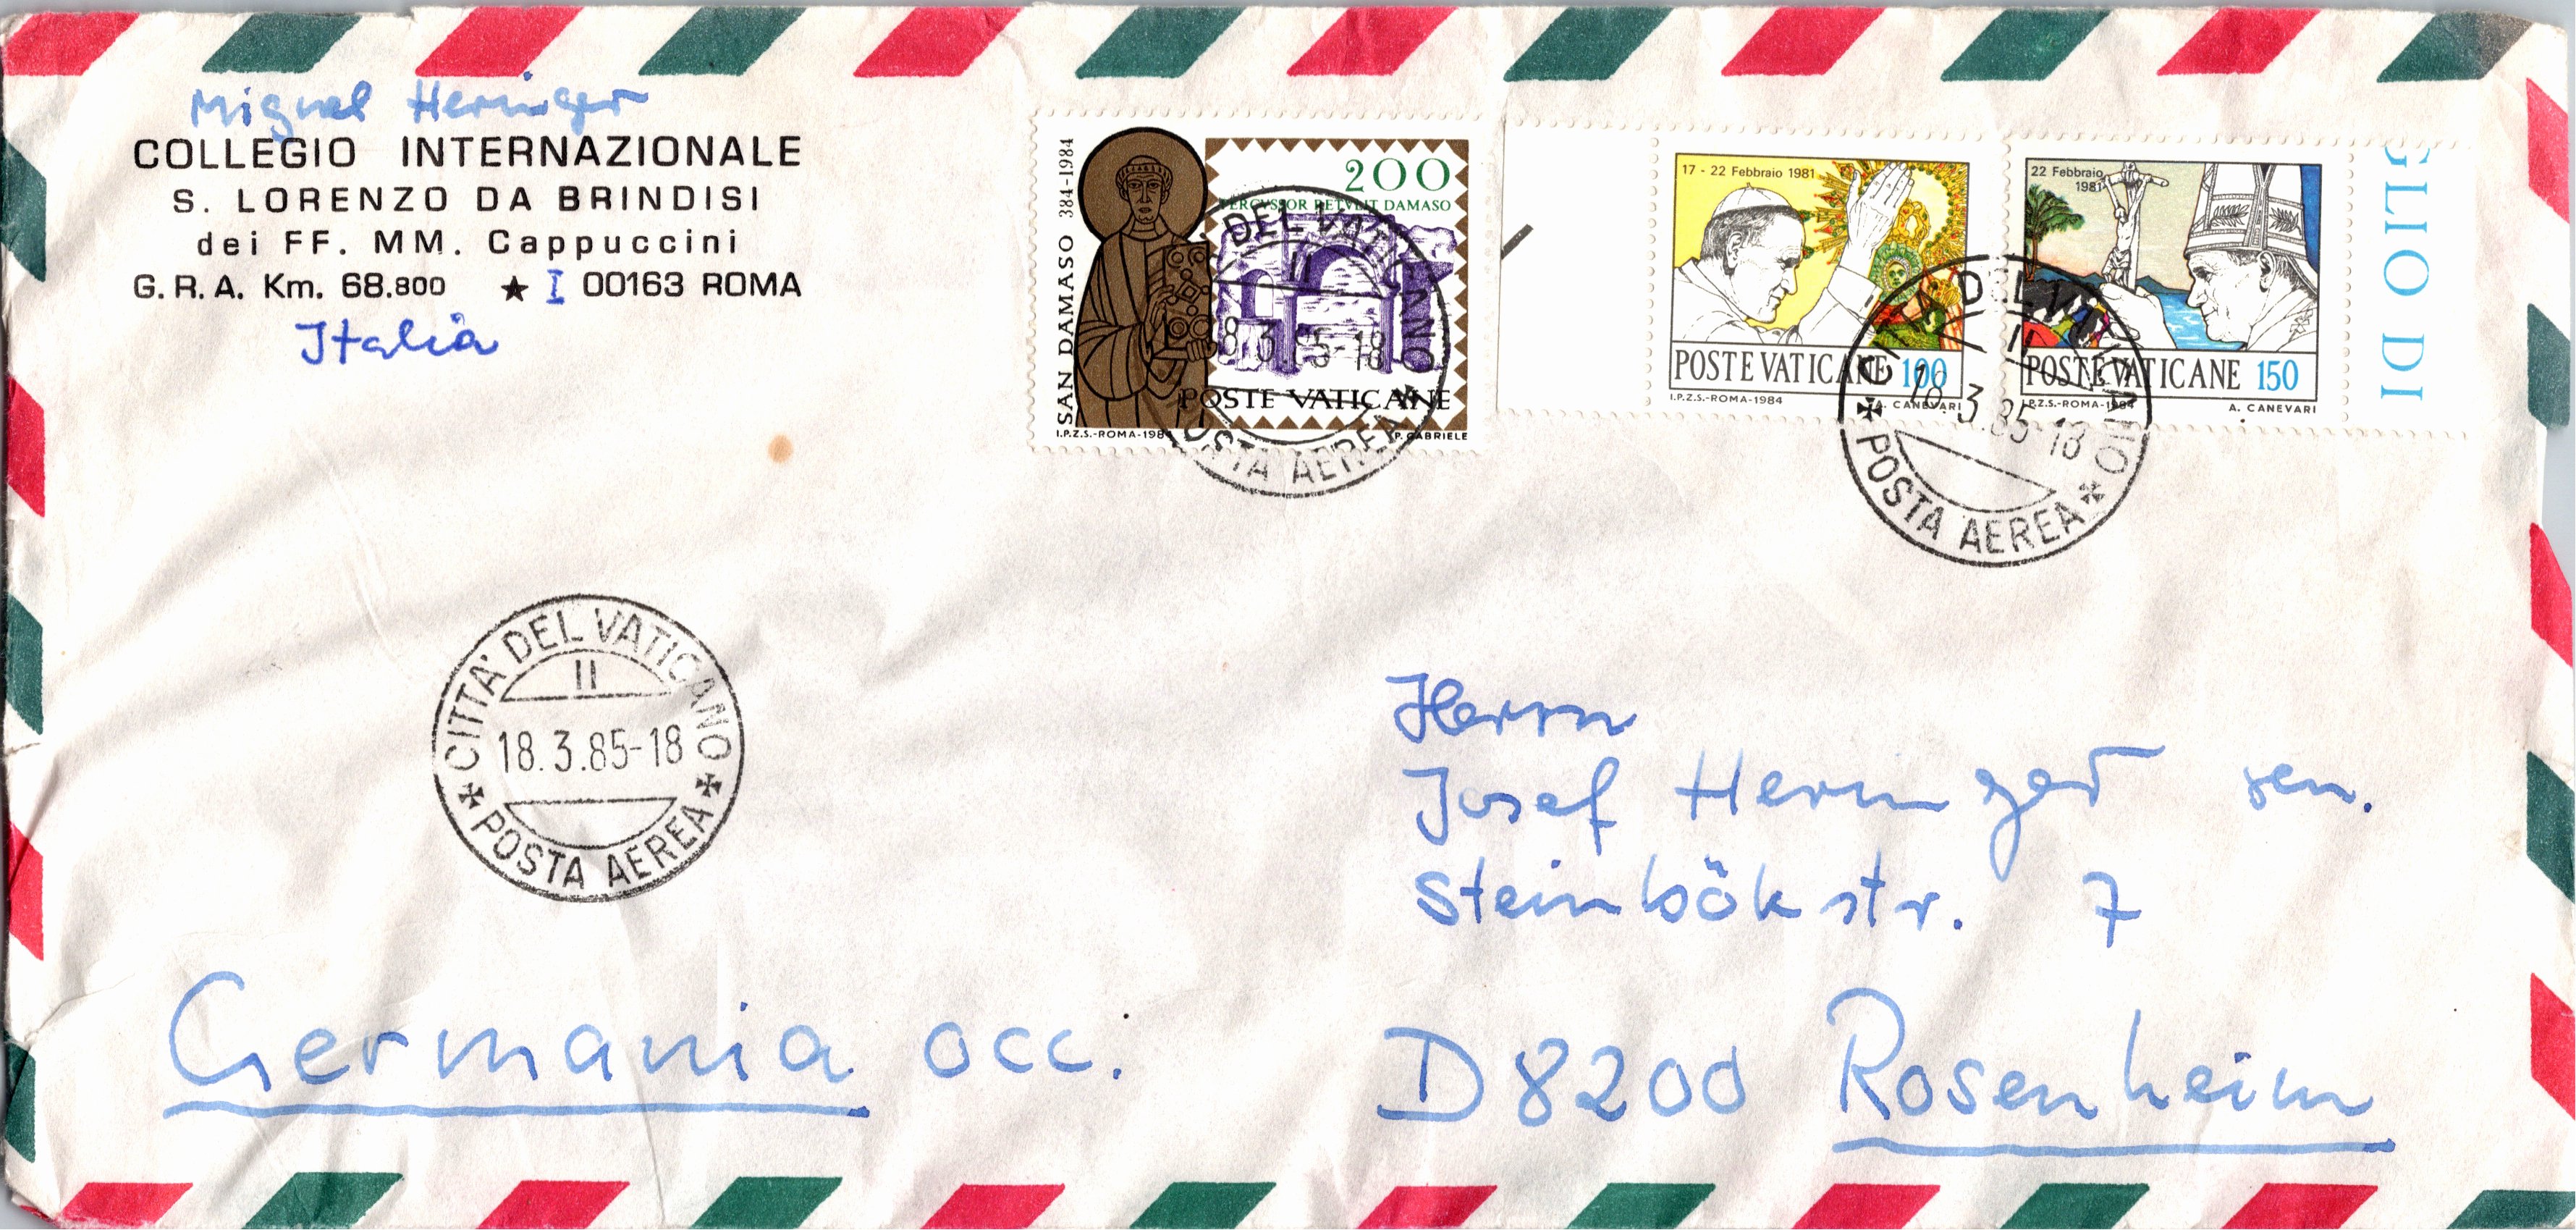 Miguel Heringer
COLLEGIO INTERNAZIONALE
S. LORENZO DA BRINDISI
dei FF. MM. Cappuccini
G. R. A. Km. 68.800 ★ I 00163 ROMA
Italia
SAN DAMASO 384-1984
200
PERCVSSOR RETVLIT DAMASO
POSTE VATICANE
I.P.Z.S.-ROMA-1984 P. GABRIELE
DEL VATICANO
II
18.3.85-18
POSTA AEREA
17 - 22 Febbraio 1981
POSTE VATICANE 100
I.P.Z.S.-ROMA-1984 A. CANEVARI
22 Febbraio
1981
POSTE VATICANE 150
I.P.Z.S.-ROMA-1984 A. CANEVARI
GLIO DI
CITTA' DEL VATICANO
II
18.3.85-18
POSTA AEREA
CITTA' DEL VATICANO
II
18.3.85-18
POSTA AEREA
Herrn
Josef Heringer sen.
Steinbökstr. 7
Germania occ.
D 8200 Rosenheim